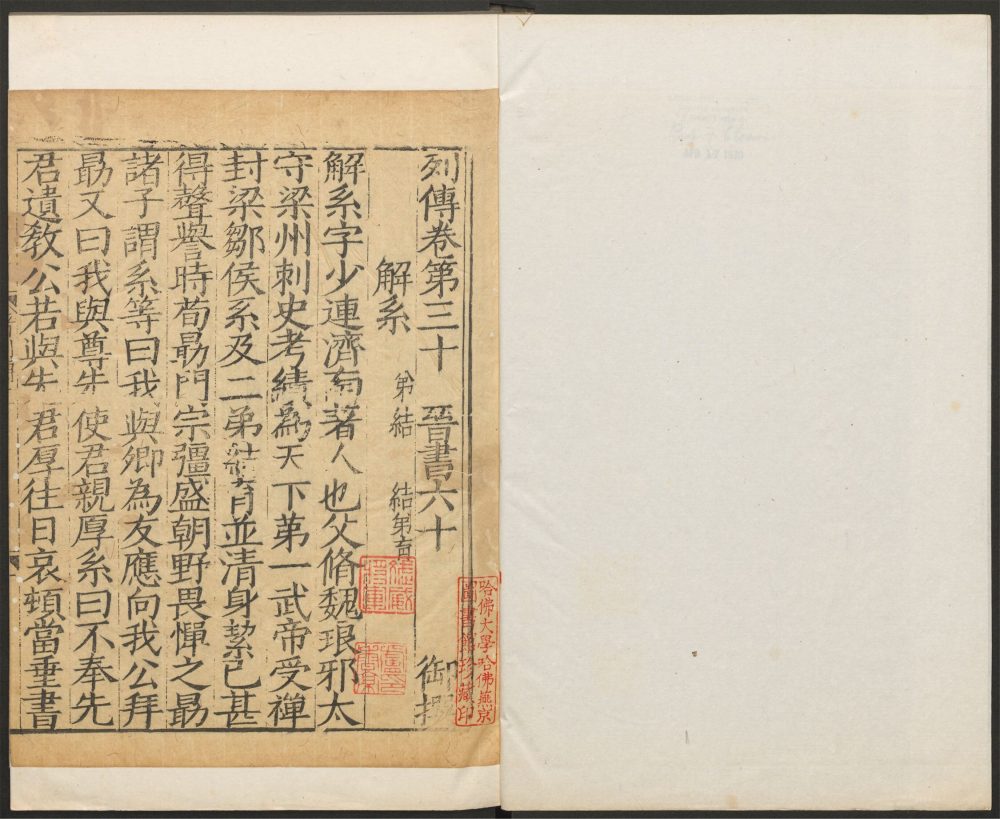 列傳卷第三十　晉書六十　御撰
解系　弟結　結弟育
解系字少連濟南著人也父脩魏琅邪太
守梁州刺史考績為天下第一武帝受禪
封梁鄒侯系及二弟結育並清身絜己甚
得聲譽時荀勗門宗彊盛朝野畏憚之勗
諸子謂系等曰我與卿為友應向我公拜
勗又曰我與尊先使君親厚系曰不奉先
君遺教公若與先君厚往日哀頓當垂書
哈佛大學哈佛燕京
圖書館珍藏印